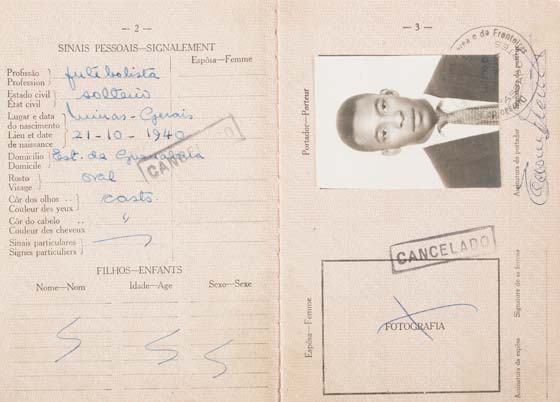 — 2 —
SINAIS PESSOAIS—SIGNALEMENT
Espôsa—Femme
Profissão
Profession
futebolista
Estado civil
État civil
solteiro
Lugar e data
do nascimento
Lieu et date
de naissance
Minas-Gerais
21-10-1940
Domicílio
Domicile
Est. da Guanabara
Rosto
Visage
oval
Côr dos olhos ..
Couleur des yeux
casts.
Côr do cabelo ..
Couleur des cheveux
"
Sinais particulares
Signes particuliers
CANCELADO
FILHOS—ENFANTS
Nome—Nom
Idade—Age
Sexo—Sexe
— 3 —
Portador—Porteur
Assinatura do portador
CANCELADO
Espôsa—Femme
FOTOGRAFIA
Assinatura da espôsa
Signature de sa femme